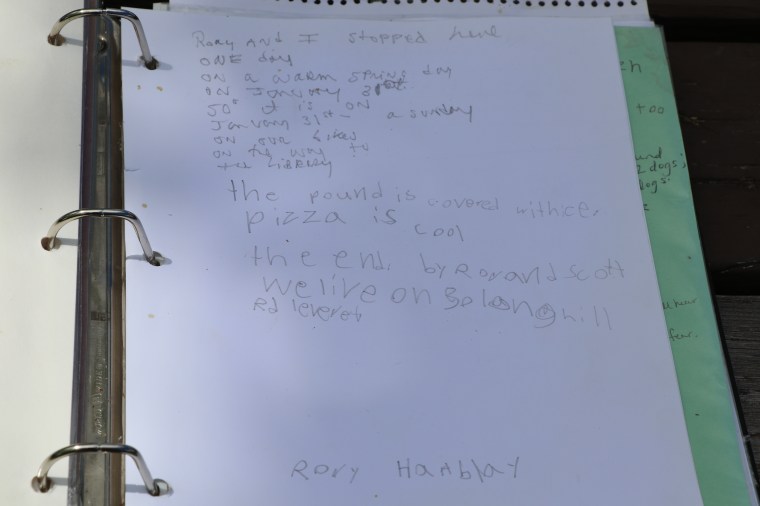 Rory AND I stopped here
ONE day
ON a warm spring day
ON January 31st
50° it is ON
January 31st - a sunday
ON our bikes
ON the way to
the LIBRARY
the pound is covered with ice.
pizza is cool
the end. by Rory and Scott
we live on 30 long hill
Rd leverett
Rory Hamblay
zh
too
und
2 dogs;
dogs.
fear.